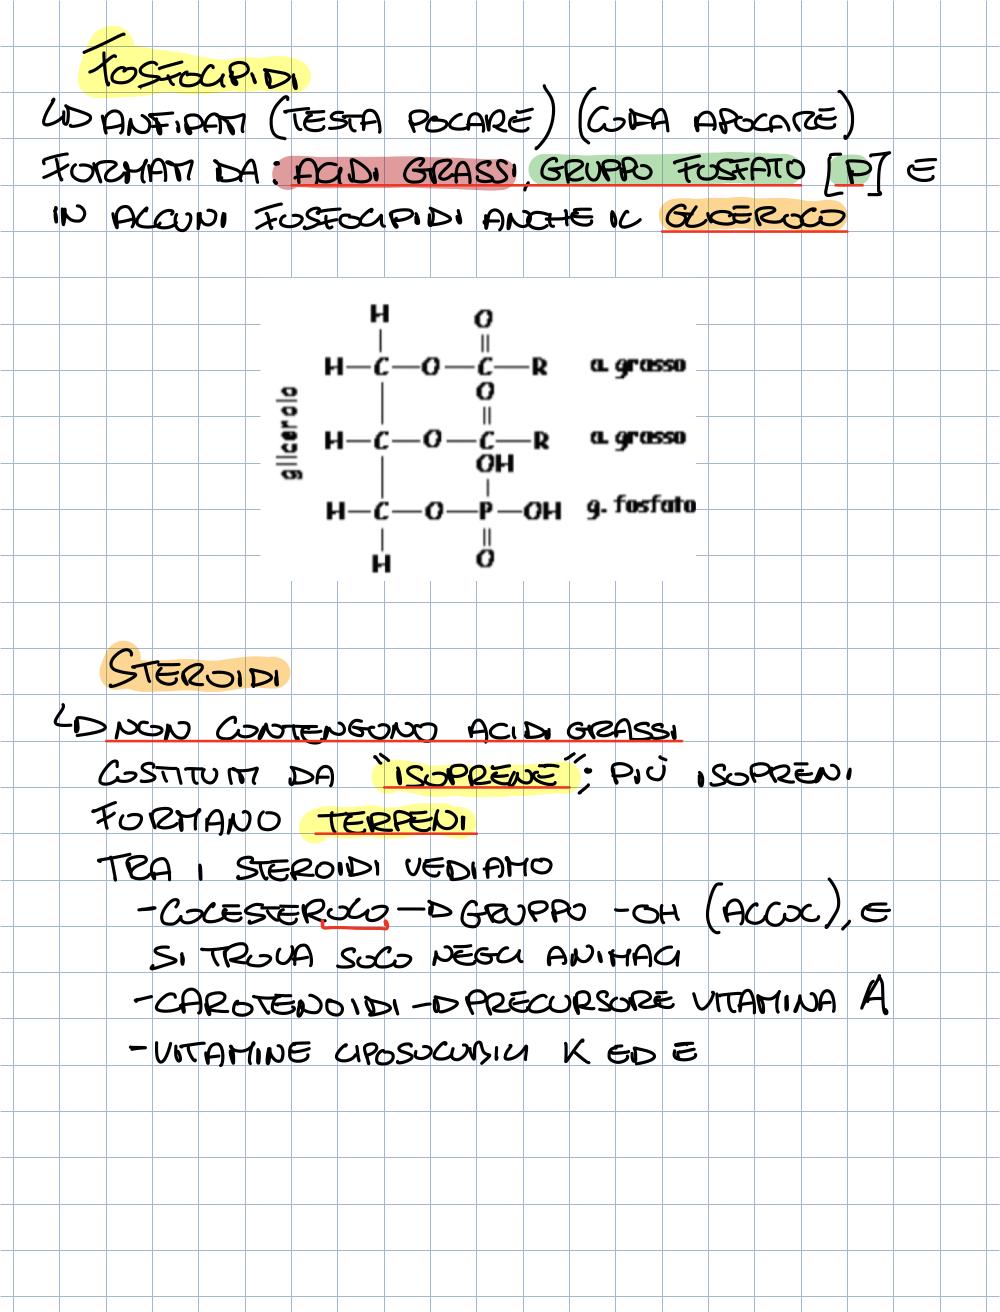 FOSFOLIPIDI
↳ ANFIPATI (TESTA POLARE) (CODA APOLARE)
FORMATI DA: ACIDI GRASSI, GRUPPO FOSFATO [P] E
IN ALCUNI FOSFOLIPIDI ANCHE IL GLICEROLO
H O
H—C—O—C—R a. grasso
O
glicerolo
H—C—O—C—R a. grasso
OH
H—C—O—P—OH g. fosfato
H O
STEROIDI
↳ NON CONTENGONO ACIDI GRASSI
COSTITUITI DA "ISOPRENE"; PIÙ ISOPRENI
FORMANO TERPENI
TRA I STEROIDI VEDIAMO
-COLESTEROLO → GRUPPO -OH (ALCOL), E
SI TROVA SOLO NEGLI ANIMALI
-CAROTENOIDI → PRECURSORE VITAMINA A
-VITAMINE LIPOSOLUBILI K ED E